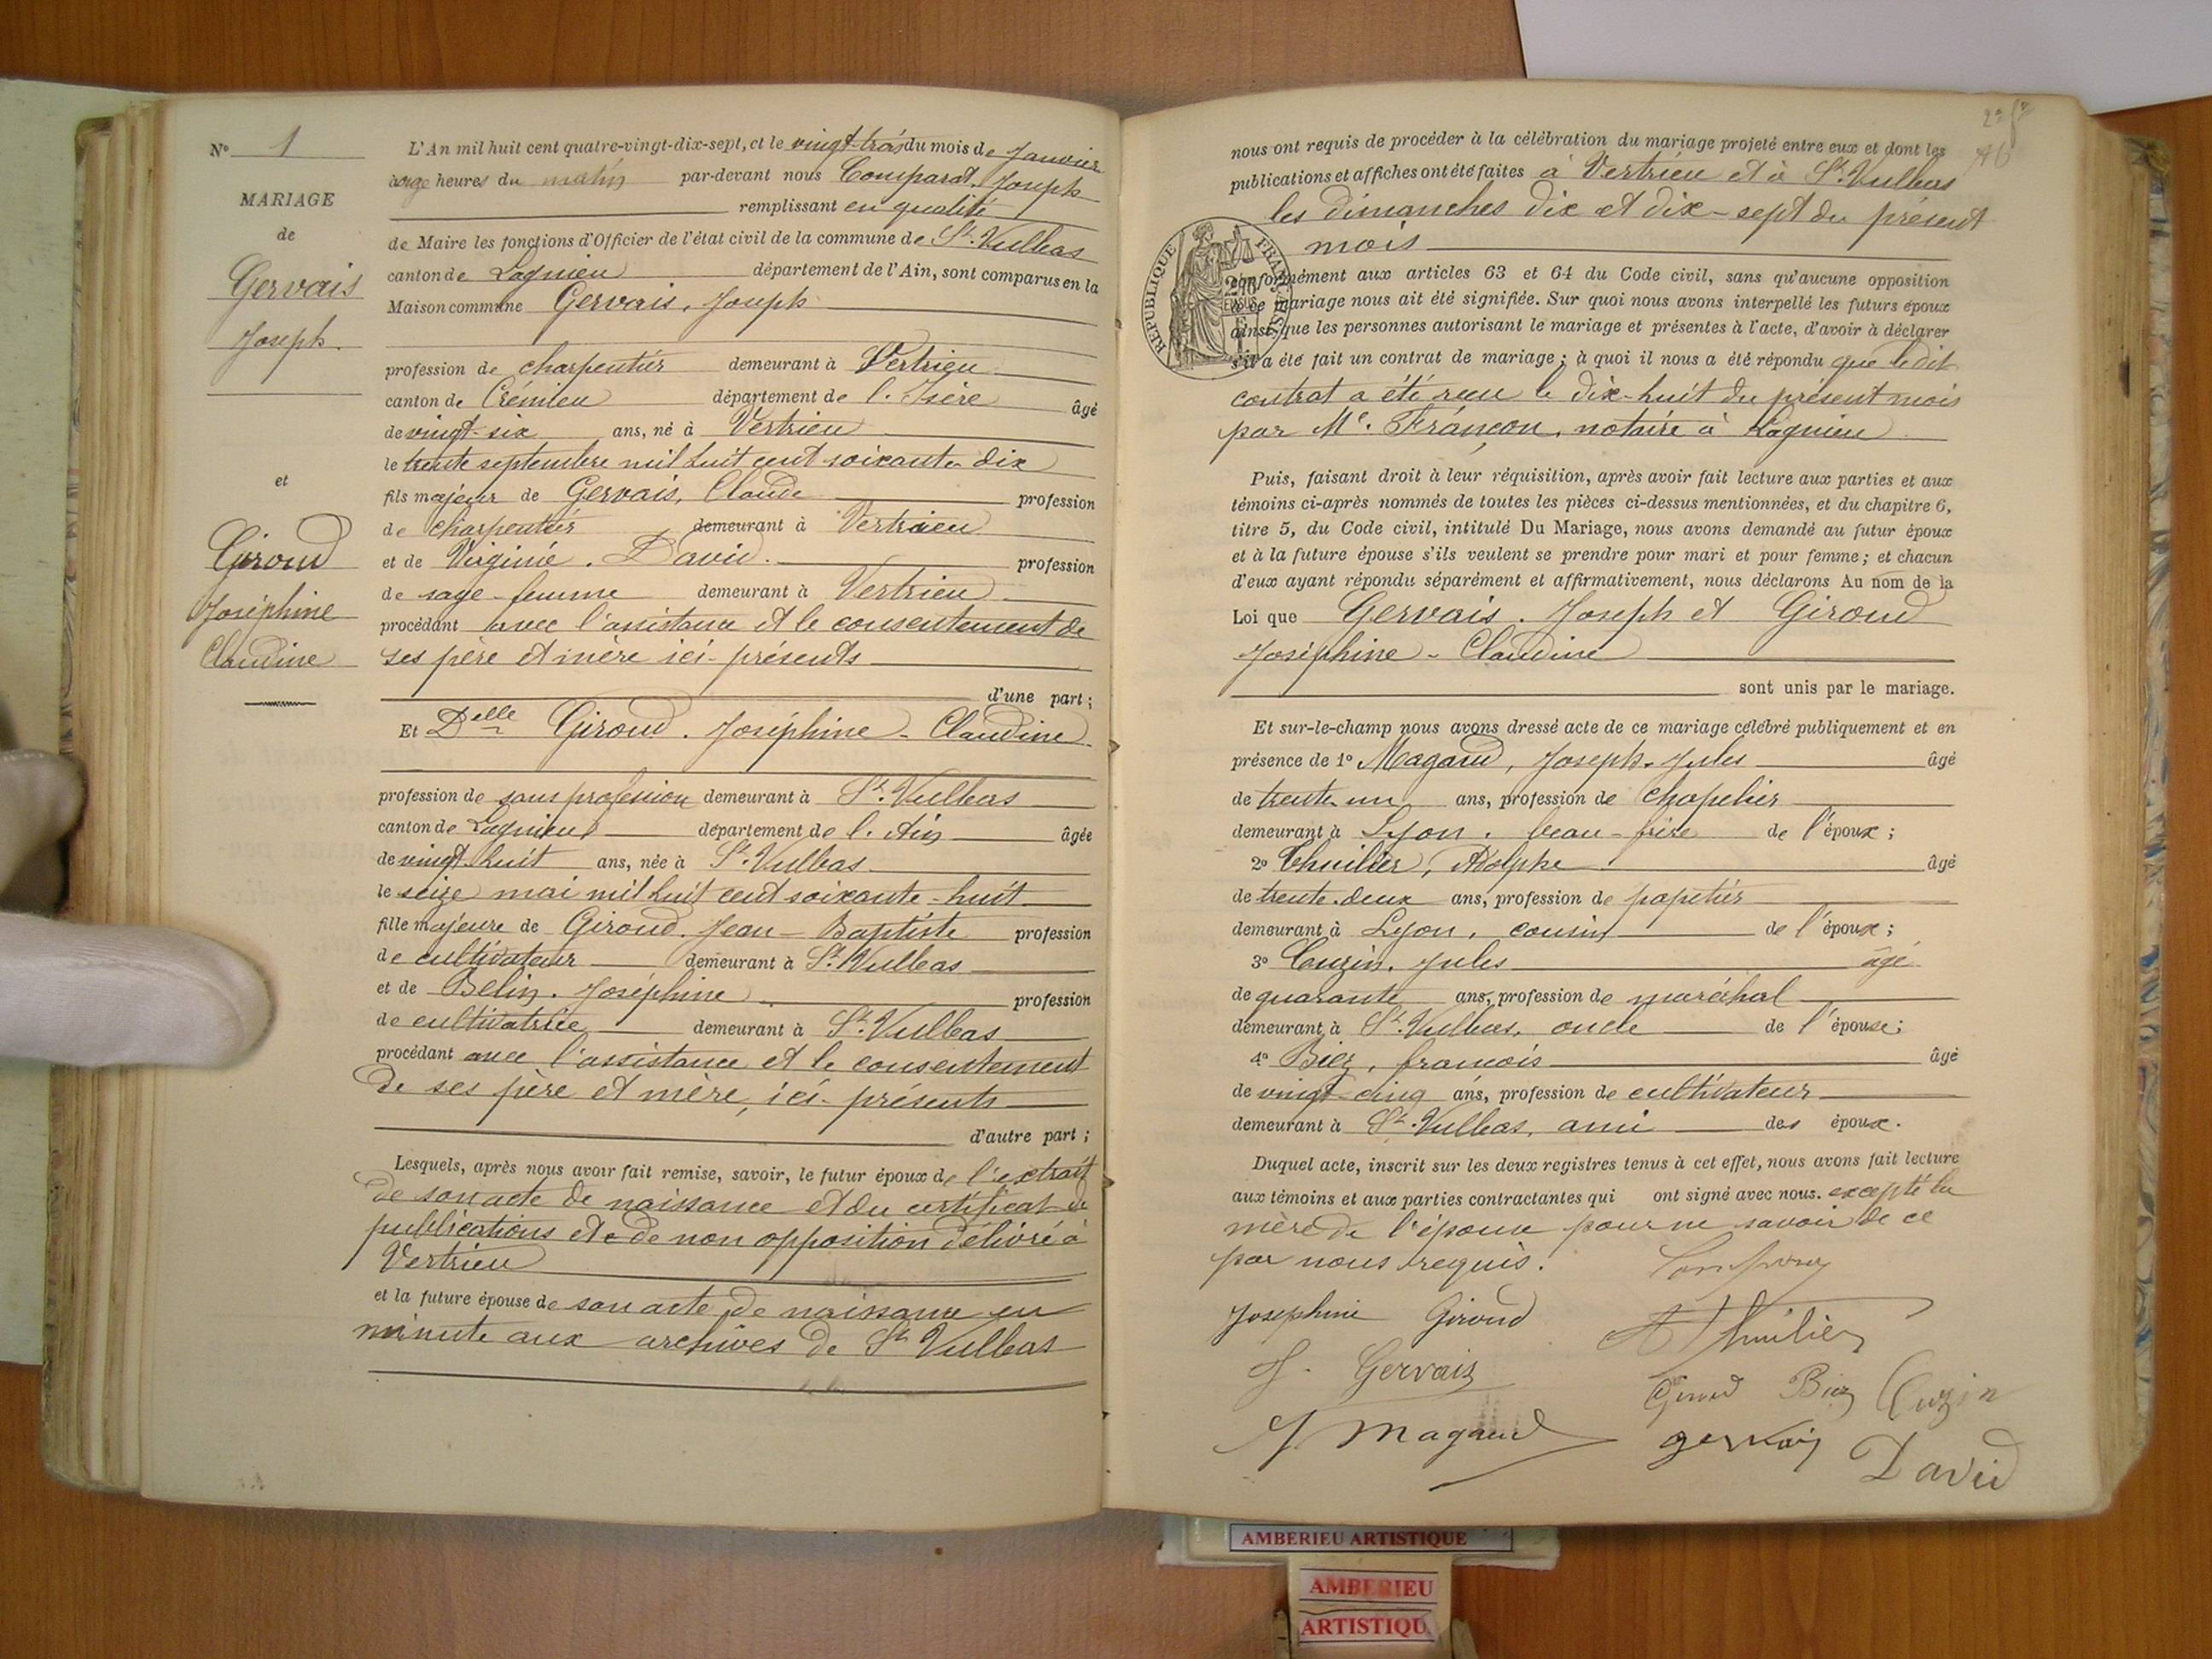 N° 1
MARIAGE
de
Gervais
Joseph.
et
Giroud
Joséphine
Claudine
L'An mil huit cent quatre-vingt-dix-sept, et le vingt-trois du mois de Janvier
à onze heures du matin par-devant nous Comparat, Joseph
remplissant en qualité
de Maire les fonctions d'Officier de l'état civil de la commune de St. Vulbas
canton de Lagnieu département de l'Ain, sont comparus en la
Maison commune Gervais, Joseph
profession de charpentier demeurant à Vertrieu
canton de Crémieu département de l'Isère âgé
de vingt-six ans, né à Vertrieu
le trente septembre mil huit cent soixante-dix
fils majeur de Gervais, Claude profession
de charpentier demeurant à Vertrieu
et de Virginie. David. profession
de sage-femme demeurant à Vertrieu
procédant avec l'assistance et le consentement de
ses père et mère ici-présents
d'une part;
Et Delle Giroud. Joséphine-Claudine
profession de sans profession demeurant à St. Vulbas
canton de Lagnieu département de l'Ain âgée
de vingt-huit ans, née à St. Vulbas
le seize mai mil huit cent soixante-huit
fille majeure de Giroud. Jean-Baptiste profession
de cultivateur demeurant à St. Vulbas
et de Belin. Joséphine profession
de cultivatrice demeurant à St. Vulbas
procédant avec l'assistance et le consentement
de ses père et mère, ici-présents
d'autre part;
Lesquels, après nous avoir fait remise, savoir, le futur époux de l'extrait
de son acte de naissance et du certificat de
publications et de non opposition délivré à
Vertrieu
et la future épouse de son acte de naissance en
minute aux archives de St Vulbas
nous ont requis de procéder à la célébration du mariage projeté entre eux et dont les
publications et affiches ont été faites à Vertrieu et à St. Vulbas
les dimanches dix et dix-sept du présent
mois
RÉPUBLIQUE FRANÇAISE
conformément aux articles 63 et 64 du Code civil, sans qu'aucune opposition
à ce mariage nous ait été signifiée. Sur quoi nous avons interpellé les futurs époux
ainsi que les personnes autorisant le mariage et présentes à l'acte, d'avoir à déclarer
s'il a été fait un contrat de mariage; à quoi il nous a été répondu que le dit
contrat a été reçu le dix-huit du présent mois
par Me. Françon, notaire à Lagnieu
Puis, faisant droit à leur réquisition, après avoir fait lecture aux parties et aux
témoins ci-après nommés de toutes les pièces ci-dessus mentionnées, et du chapitre 6,
titre 5, du Code civil, intitulé Du Mariage, nous avons demandé au futur époux
et à la future épouse s'ils veulent se prendre pour mari et pour femme; et chacun
d'eux ayant répondu séparément et affirmativement, nous déclarons Au nom de la
Loi que Gervais. Joseph et Giroud
Joséphine-Claudine
sont unis par le mariage.
Et sur-le-champ nous avons dressé acte de ce mariage célébré publiquement et en
présence de 1° Magaud, Joseph-Jules âgé
de trente-un ans, profession de chapelier
demeurant à Lyon, beau-frère de l'époux;
2° Thuilier, Adolphe âgé
de trente-deux ans, profession de papetier
demeurant à Lyon, cousin de l'époux;
3° Cuzin, Jules âgé
de quarante ans, profession de maréchal
demeurant à St. Vulbas, oncle de l'épouse;
4° Biez, françois âgé
de vingt-cinq ans, profession de cultivateur
demeurant à St. Vulbas, ami des époux.
Duquel acte, inscrit sur les deux registres tenus à cet effet, nous avons fait lecture
aux témoins et aux parties contractantes qui ont signé avec nous. excepté la
mère de l'épouse pour ne savoir de ce
par nous requis.
Josephine Giroud
A Thuilier
J. Gervais
Giroud Biez Cuzin
J Magaud gervais David
AMBERIEU ARTISTIQUE
AMBERIEU
ARTISTIQU